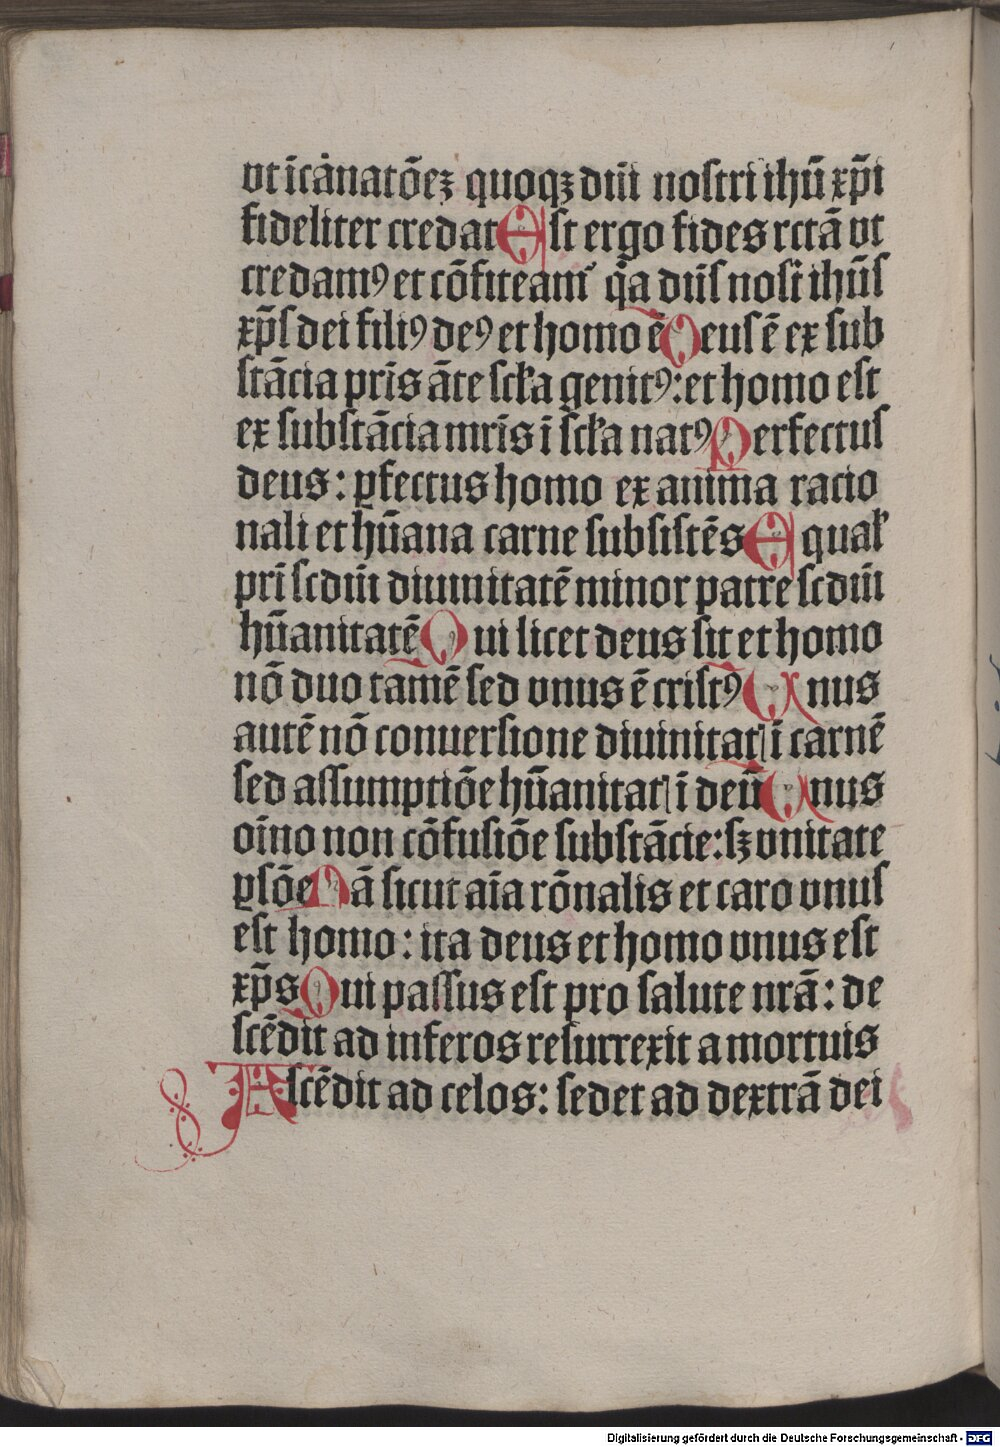 vt īcȧnatōeꝫ quoqꝫ dn̄i nostri ihū xp̄i
fideliter credat Est ergo fides rctā vt
credamꝰ et cōfiteam᷑ qȧ dn̄s nosť ihūs
xp̄s dei filiꝰ deꝰ et homo ē Deus ē ex sub
stācia prīs āte scl̄a genitꝰ: et homo est
ex substācia mrīs ī scl̄a natꝰ Perfectus
deus: ꝑfectus homo ex anima racio
nali et hūana carne subsistēs Equal̄
prī scdm̄ diuinitatē minor patre scdm̄
hūanitatē Qui licet deus sit et homo
nō duo tamē sed vnus ē cristꝰ Unus
autē nō conuersione diuinitatꝭ ī carnē
sed assumptiōe hūanitatꝭ ī deū Unus
oīno non cōfusiōe substācie: sꝫ vnitate
ꝑsōe Nā sicut aīa rōnalis et caro vnus
est homo: ita deus et homo vnus est
xp̄s Qui passus est pro salute nrā: de
scēdit ad inferos resurrexit a mortuis
Ascēdit ad celos: sedet ad dextrā dei
Digitalisierung gefördert durch die Deutsche Forschungsgemeinschaft - DFG